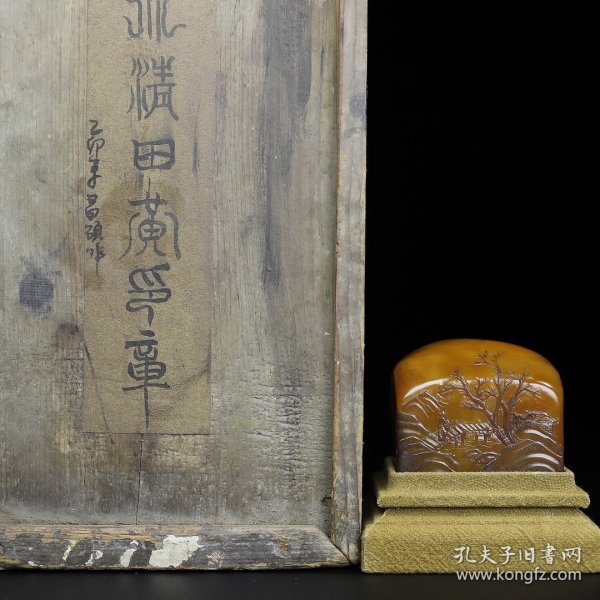 清田黄印章
乙卯年昌硕作
孔夫子旧书网
www.kongfz.com